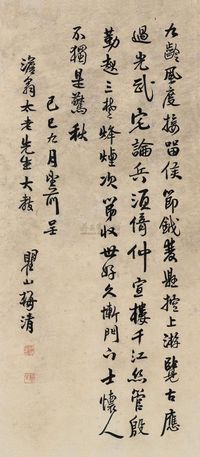 九齡風度接留侯節鉞懸控上游覽古應
過光武宅論兵須倚仲宣樓千江絲管殷
勤三楚烽煙次第收世好久慚門下士懷人
不獨是驚秋
己巳九月望前呈
澹翁太老先生大教
瞿山梅清